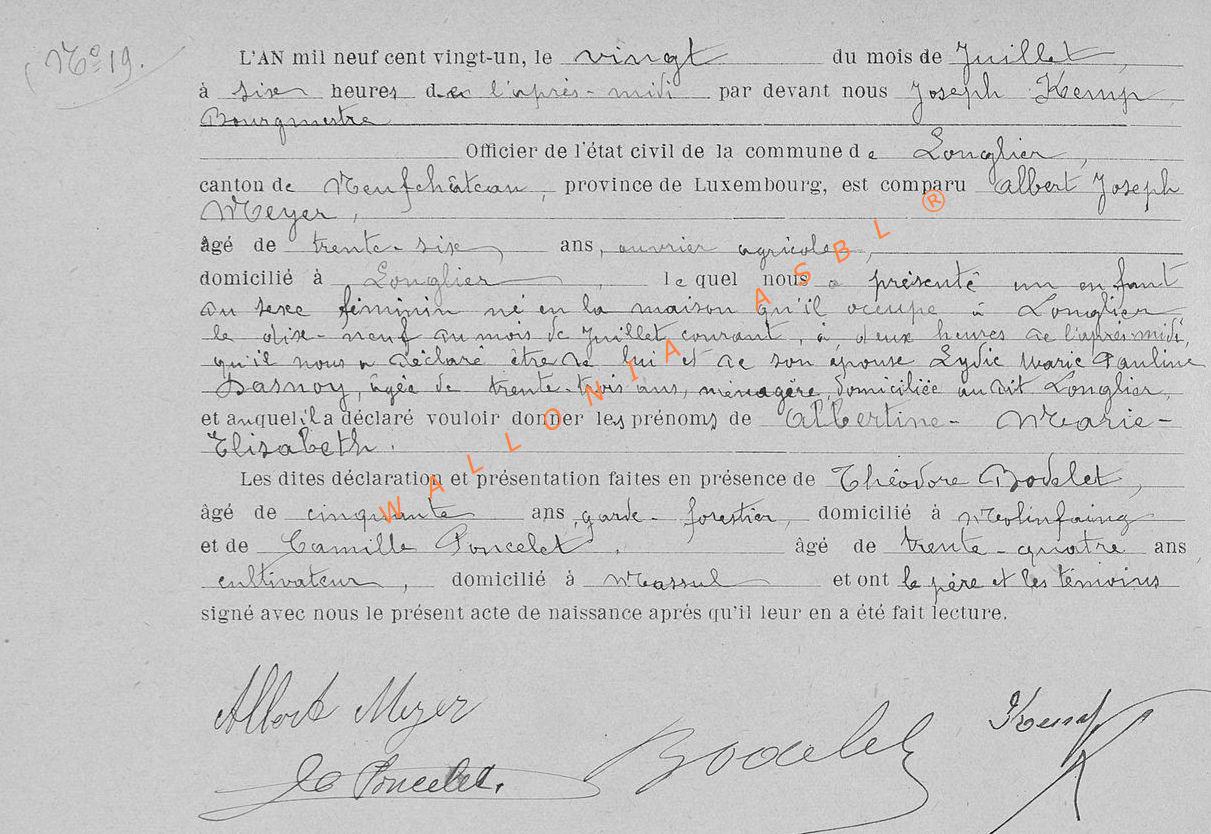 N° 19.
L'AN mil neuf cent vingt-un, le vingt du mois de Juillet,
à six heures de l'après-midi par devant nous Joseph Kemp
Bourgmestre
Officier de l'état civil de la commune de Longlier,
canton de Neufchâteau, province de Luxembourg, est comparu Albert Joseph
Meyer,
âgé de trente-six ans, ouvrier agricole,
domicilié à Longlier, lequel nous a présenté un enfant
du sexe féminin né en la maison qu'il occupe à Longlier
le dix-neuf du mois de Juillet courant, à deux heures de l'après midi,
qu'il nous a déclaré être de lui et de son épouse Lydie Marie Pauline
Dasnoy, âgée de trente-trois ans, ménagère, domiciliée au dit Longlier,
et auquel il a déclaré vouloir donner les prénoms de Albertine-Marie-
Elisabeth.
Les dites déclaration et présentation faites en présence de Théodore Bodelet,
âgé de cinquante ans, garde-forestier, domicilié à Molinfaing
et de Camille Poncelet, âgé de trente-quatre ans
cultivateur, domicilié à Massul et ont le père et les témoins
signé avec nous le présent acte de naissance aprés qu'il leur en a été fait lecture.
WALLONIA ASBL ®
Albert Meyer
Bodelet
Kemp
C Poncelet.